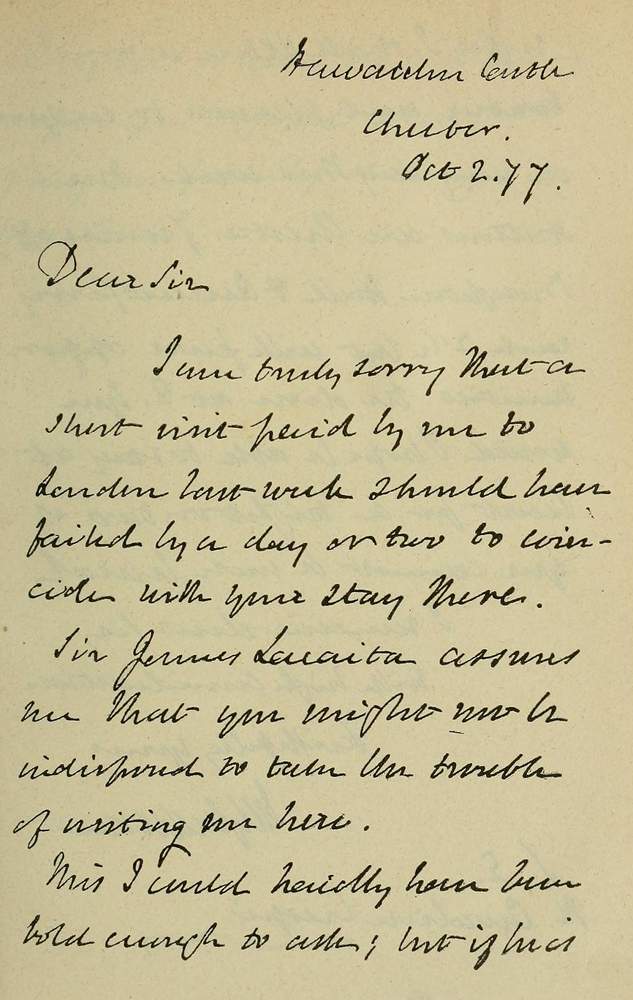 Hawarden Castle
Chester.
Oct 2. 77.
Dear Sir
I am truly sorry that a
short visit paid by me to
London last week should have
failed by a day or two to coin-
cide with your stay there.
Sir James Lacaita assures
me that you might not be
indisposed to take the trouble
of visiting me here.
This I could hardly have been
bold enough to ask; but if he is